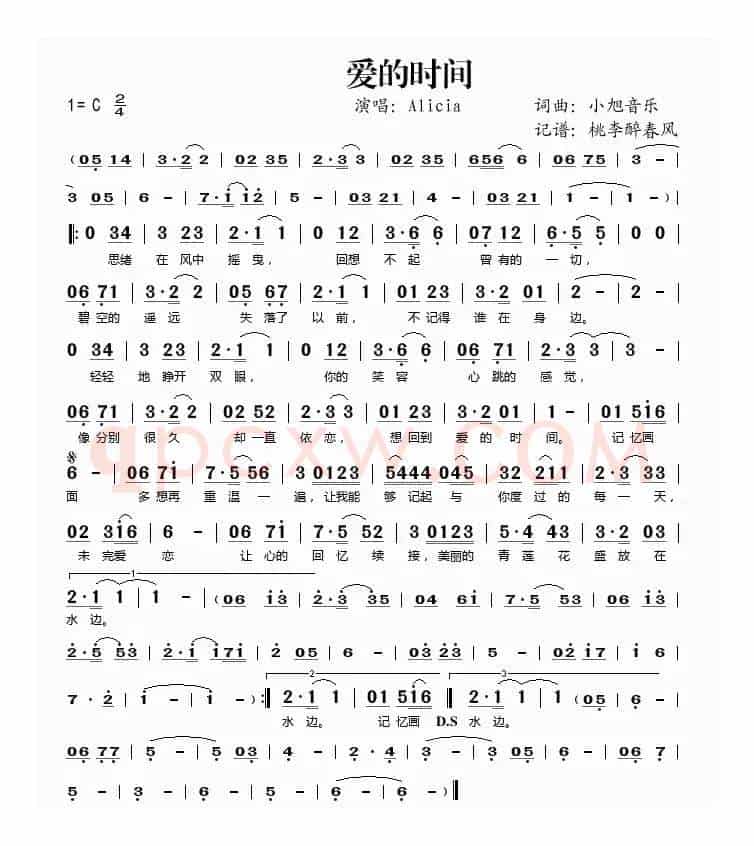 爱的时间
1= C 2/4 演唱：Alicia 词曲：小旭音乐
记谱：桃李醉春风
（05 14 | 3·2 2 | 02 35 | 1·3 3 | 02 35 | 656 6 | 06 75 | 3 – |
3 05 | 6 – | 7·i i2 | 5 – | 03 21 | 4 – | 03 21 | 1 – | 1 –）|
‖: 0 34 | 3 23 | 2·1 1 | 0 12 | 3·6 6 | 07 12 | 6·5 5 | 0 0 |
思绪 在 风中 摇 曳， 回想 不 起 曾 有的 一 切，
06 71 | 3·2 2 | 05 67 | 2·1 1 | 01 23 | 5 32 | 2 – | 2 – |
碧 空的 遥 远 失 落了 以 前， 不 记得 谁 在 身 边。
0 34 | 3 23 | 2·1 1 | 0 12 | 3·6 6 | 06 71 | 3·3 3 | 3 0 |
轻轻 地 睁开 双 眼， 你的 笑 容 心 跳的 感 觉，
06 71 | 3·2 2 | 02 52 | 2·3 3 | 01 23 | 2·1 01 | 1 – | 01 5i6 |
像 分别 很 久 却 一直 依 恋， 想 回到 爱 的 时 间。 记 忆画
6 – | 06 7i | 7·5 56 | 3 0123 | 5444 045 | 32 211 | 2·3 33 |
面 多 想再 重 温 一 遍，让我能 够 记起 与 你度 过 的 每 一 天，
02 3i6 | 6 – | 06 7i | 7·5 52 | 3 0123 | 5·4 43 | 3·2 03 |
未 完爱 恋 让 心的 回 忆 续 接，美丽的 青 莲 花 盛 放 在
1
2·1 1 | 1 – |（06 i3 | 2·3 35 | 04 61 | 7·5 53 | 06 i2 |
水 边。
2·5 53 | 2·i i7i | 2 05 | 6 – | 03 235 | 5 – | 02 i7 | i 6 |
2 3
7·2 | i – | i –）:‖ 2·1 1 | 01 5i6 ‖ 2·1 1 | 1 –（05 | 6 – |
水 边。 记 忆画 D.S 水 边。
06 77 | 5 – | 5 03 | 4 – | 2·4 | 3 – | 3 05 | 6 – | 06 7 |
5 – | 3 – | 6 – | 5 – | 6 – | 6 –）‖
qpcxw.com